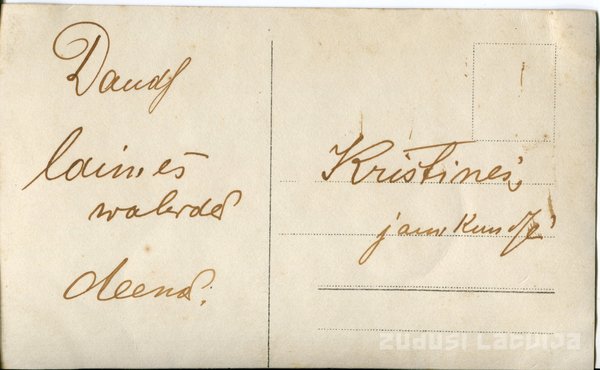 Daudſ
laimes
wahrda
deenā.
Kristines
jaunkundſe
zudusi Latvija